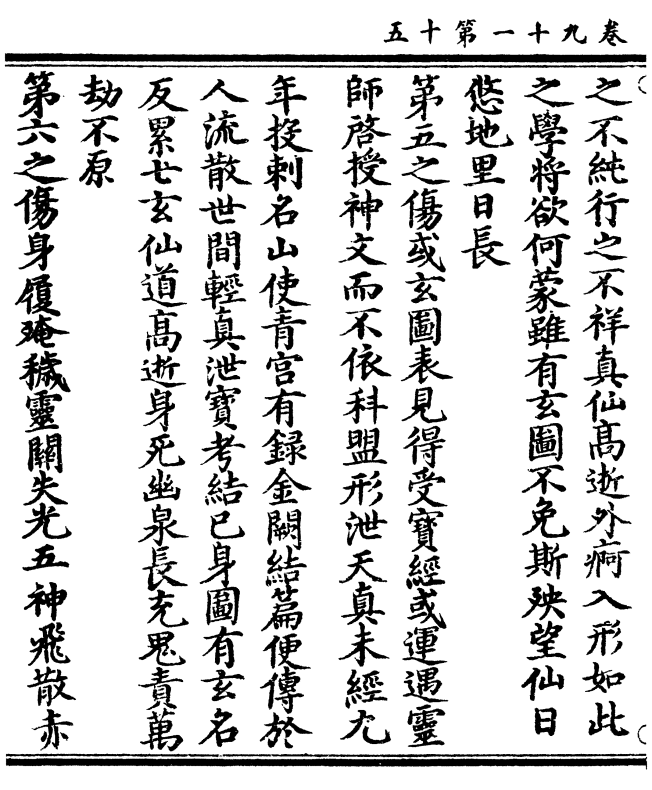 卷九十一第十五
之不純行之不祥真仙高逝外痾入形如此
之學將欲何蒙雖有玄圖不免斯殃望仙日
悠地里日長
第五之傷或玄圖表見得受寶經或運遇靈
師啓授神文而不依科盟形泄天真未經九
年投刺名山使青宮有録金闕結篇便傳於
人流散世間輕真泄寶考結已身圖有玄名
反累七玄仙道高逝身死幽泉長充鬼責萬
劫不原
第六之傷身履殗穢靈關失光五神飛散赤